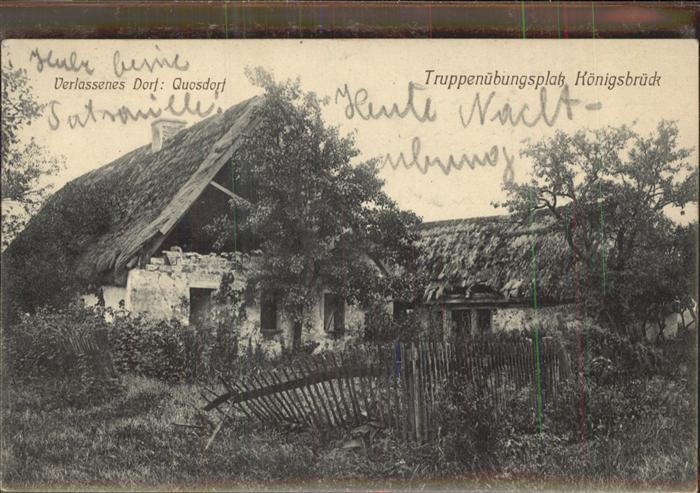 Verlassenes Dorf: Quosdorf
Truppenübungsplatz Königsbrück
Habe beine
Patrouille
Heute Nacht-
übung